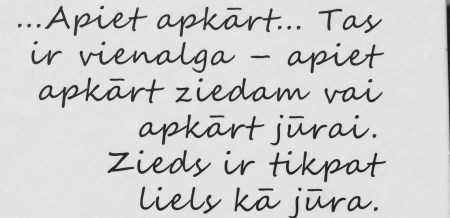 ...Apiet apkārt... Tas
ir vienalga – apiet
apkārt ziedam vai
apkārt jūrai.
Zieds ir tikpat
liels kā jūra.